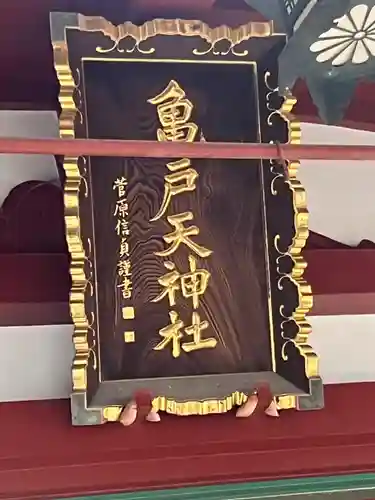 亀戸天神社
菅原信貞謹書